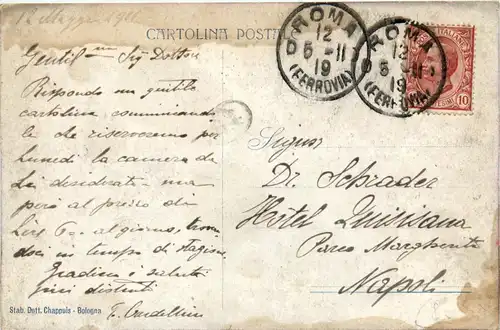 12 Maggio 1911
CARTOLINA POSTALE
Gentil.mo Sig Dottore
Rispondo sua gentile
cartolina comunicando
le che riserveremo per
lunedi la camera da
Lei desiderata ma
però al prezzo di
Lire 6 al giorno, trovan
doci in tempo di stagione
Gradisca i saluti
più distinti
Stab. Dott. Chappuis - Bologna
ROMA
12
5-11
19
(FERROVIA)
ROMA
12
5-11
19
(FERROVIA)
10
Signor
Dr. Schrader
Hotel Quisisana
Parco Margherita
Napoli